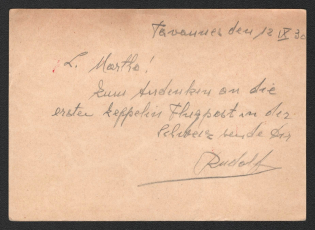 Tavannes den 12 IX 30
L. Martha!
Zum Andenken an die
ersten Zeppelin Flugpost in der
Schweiz sende Dir
Rudolf